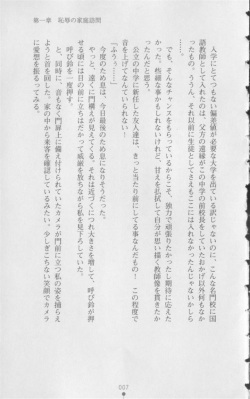 入学にとてつもない偏差値が必要な大学を出ている訳じゃないのに、こんな名門校に国
語教師として入れたのは、父方の遠縁がこの中学の前校長をしていたおかげ以外何もなか
ったもの。ううん、それ以前に生徒としてさえもここには入れなかったんじゃないかしら
でも、そんなチャンスをもらっているからこそ、独力で頑張りたかったし期待に応えた
かった。些細な事かもしれないけれど、甘えを払拭して自分が思い描く教師像を貫きたか
ったんだと思う。
公立の中学に行った友人達は、きっと当たり前にしてる事なんだもの！　この程度で
音を上げてなんていられない！
「ふうっ……」
今度のため息は、今日最後のため息になりそうだった。
やっと、遠くに門構えが見えてくる。それは近づくにつれ大きさを増して、呼び鈴が押
せる頃には目の前に立ちはだかって威厳を放ちながら私を見下ろしていた。
呼び鈴を一度押す。
と、同時に、音もなく門扉上に備え付けられていたカメラが門前に立つ私の姿を捕らえ
ようと首を回した。家の中から来客を確認しているみたい。少しぎこちない笑顔でカメラ
に愛想を振るってみる。
第一章　恥辱の家庭訪問
007